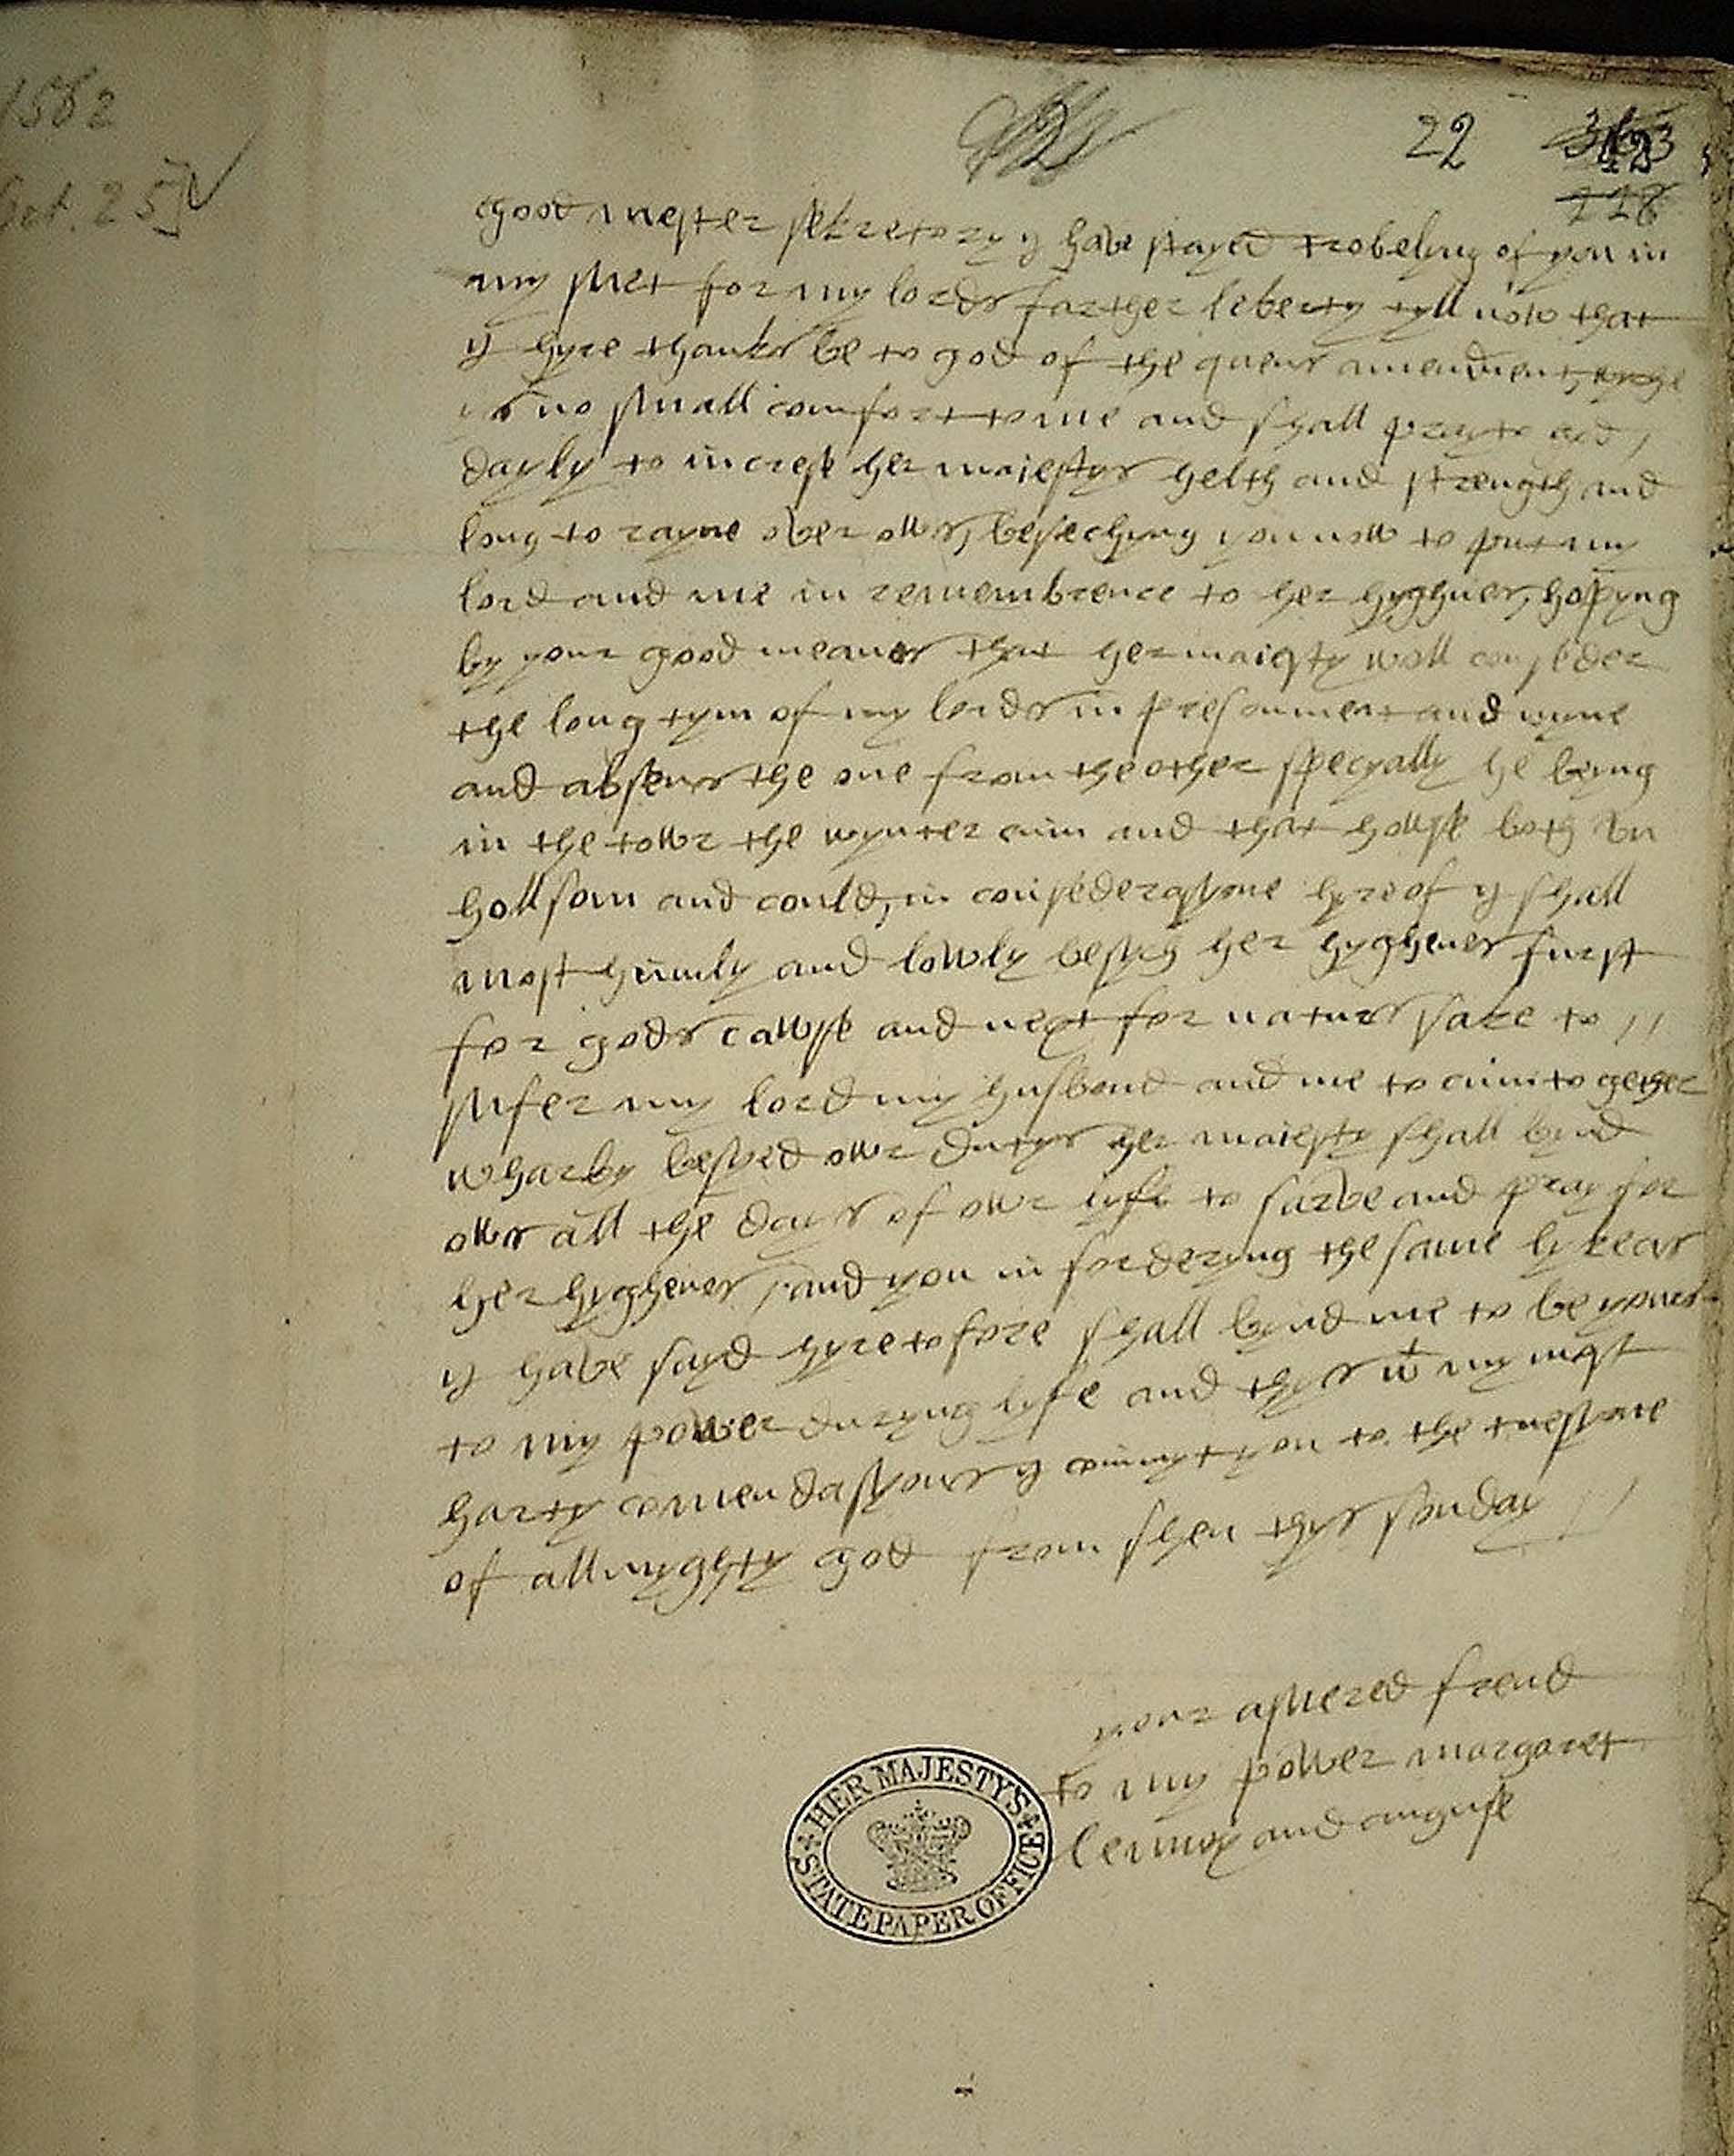 1562
Oct. 25]
22
good mester sekretory y have stayed trobelyng of you in
my swet for my lords farther leberty tyll now that
y hyre thanks be to god of the quens amendment, wyche
is no small comfort to me and shall pray to god /
dayly to increse her maiestys helth and strength and
long to rayne over ows, beseching you now to put my
lord and me in remembrence to her hyghnes, hopyng
by your good meanes that her maiesty woll conseder
the long tym of my lords in presonment and myne
and absens the one from the other specyally he being
in the towr the wynter cum and that howse both un
hollsom and could, in consederasyone hyreof y shall
most humly and lowly besych her hyghenes furst
for gods cawse and next for naturs sake to //
sufer my lord my husbond and me to cum to gether
wharby besyed owr dutys her maiesty shall bynd
ows all the days of owr lyfe to sarve and pray for
her hyghenes, and you in forderyng the same lykeas
y have sayd hyretofore shall bynd me to be yours
to my power duryng lyfe and thys wt my most
harty comendasyons y commyt you to the tuesyone
of allmyghty god from shen thys sonday //
your asuered frend
to my power margaret
lennox and anguse
HER MAJESTY'S
STATE PAPER OFFICE